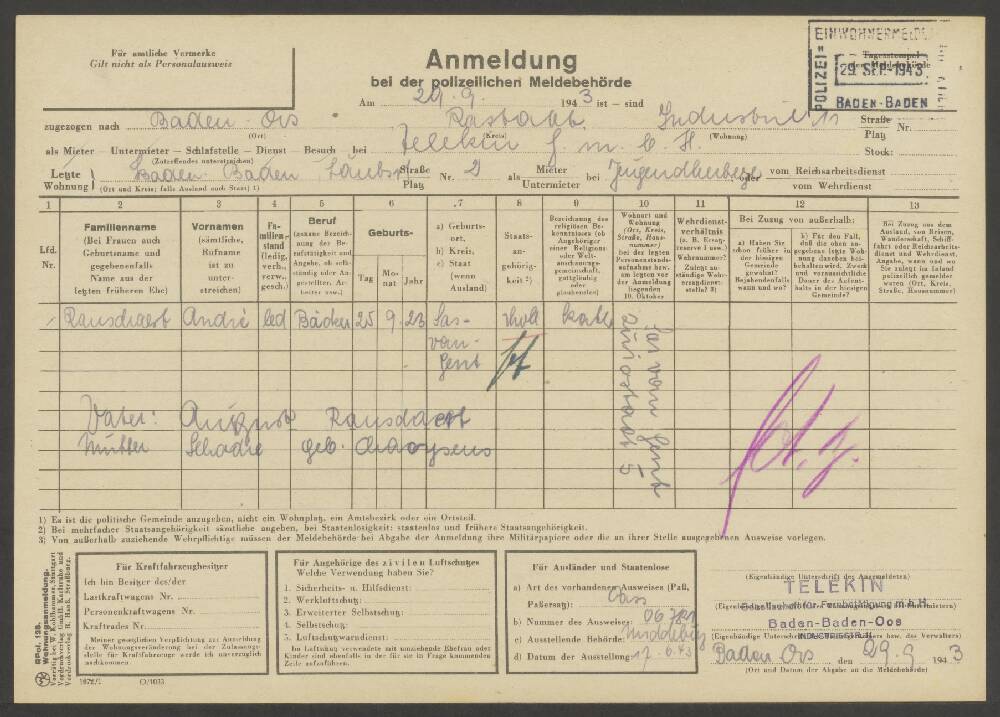 Für amtliche Vermerke
Gilt nicht als Personalausweis
Anmeldung
bei der polizeilichen Meldebehörde
Am 29. 9. 1943 ist – sind
EINWOHNERMELDE
Tagesstempel
der Meldebehörde
POLIZEI=
29. SEP. 1943
BADEN-BADEN
zugezogen nach Baden Oos Rastatt Industriestr. 11 Straße Platz Nr.
(Ort) (Kreis) (Wohnung)
als Mieter – Untermieter – Schlafstelle – Dienst – Besuch bei Telekin G. m. b. H. Stock:
(Zutreffendes unterstreichen)
Letzte Wohnung Baden-Baden, Straße Platz Nr. 2 als Mieter Untermieter bei Jugendherberge, oder vom Reichsarbeitsdienst
vom Wehrdienst
(Ort und Kreis; falls Ausland auch Staat) 1)
1 2 3 4 5 6 7 8 9 10 11 12 13
Lfd. Nr.
Familienname (Bei Frauen auch Geburtsname und gegebenenfalls Name aus der letzten früheren Ehe)
Vornamen (sämtliche, Rufname ist zu unterstreichen)
Familienstand (ledig, verh., verw., gesch.)
Beruf (genaue Bezeichnung der Berufstätigkeit und Angabe, ob selbständig oder Angestellter, Arbeiter usw.)
Geburts-
Tag Monat Jahr
a) Geburtsort, b) Kreis, c) Staat (wenn Ausland)
Staatsangehörigkeit 2)
Bezeichnung des religiösen Bekenntnisses (ob Angehöriger einer Religions- oder Weltanschauungsgemeinschaft, gottgläubig oder glaubenslos)
Wohnort und Wohnung (Ort, Kreis, Straße, Hausnummer) bei der letzten Personenstandsaufnahme bzw. am letzten vor der Anmeldung liegenden 10. Oktober
Wehrdienstverhältnis (z. B. Ersatzreserve I usw.) Wehrnummer? Zuletzt zuständige Wehrersatzdienststelle? 3)
Bei Zuzug von außerhalb:
a) Haben Sie schon früher in der hiesigen Gemeinde gewohnt? Bejahendenfalls wann und wo?
b) Für den Fall, daß die oben angegebene letzte Wohnung daneben beibehalten wird, Zweck und voraussichtliche Dauer des Aufenthalts in der hiesigen Gemeinde?
Bei Zuzug aus dem Ausland, von Reisen, Wanderschaft, Schifffahrt oder Reichsarbeitsdienst und Wehrdienst, Angabe, wann und wo Sie zuletzt im Inland polizeilich gemeldet waren (Ort, Kreis, Straße, Hausnummer)
André led Bäcker 25 9. 23 Sas-van-Gent Holl kath
Sas van Gent
Vater: August
Mutter geb.
1) Es ist die politische Gemeinde anzugeben, nicht ein Wohnplatz, ein Amtsbezirk oder ein Ortsteil.
2) Bei mehrfacher Staatsangehörigkeit sämtliche angeben, bei Staatenlosigkeit: staatenlos und frühere Staatsangehörigkeit.
3) Von außerhalb zuziehende Wehrpflichtige müssen der Meldebehörde bei Abgabe der Anmeldung ihre Militärpapiere oder die an ihrer Stelle ausgegebenen Ausweise vorlegen.
RPol. 128.
Wohnungsanmeldung.
Für Kraftfahrzeugbesitzer
Ich bin Besitzer des/der
Lastkraftwagens Nr.
Personenkraftwagens Nr.
Kraftrades Nr.
Meiner gesetzlichen Verpflichtung zur Anmeldung
der Wohnungsveränderung bei der Zulassungs-
stelle für Kraftfahrzeuge werde ich unverzüglich
nachkommen.
Für Angehörige des zivilen Luftschutzes
Welche Verwendung haben Sie?
1. Sicherheits- u. Hilfsdienst:
2. Werkluftschutz:
3. Erweiterter Selbstschutz:
4. Selbstschutz:
5. Luftschutzwarndienst:
Im Luftschutz verwendete mit umziehende Ehefrau oder
Kinder sind ebenfalls in der für sie in Frage kommenden
Zeile aufzuführen.
Für Ausländer und Staatenlose
a) Art des vorhandenen Ausweises (Paß,
Paßersatz): Pass
b) Nummer des Ausweises:
c) Ausstellende Behörde: Middelburg
d) Datum der Ausstellung: 17. 6. 43
(Eigenhändige Unterschrift des Angemeldeten)
TELEKIN
Gesellschaft für Fernbetätigung m.b.H.
Baden-Baden-Oos
INDUSTRIESTR. 11
Baden Oos, den 29. 9. 1943
(Ort und Datum der Abgabe an die Meldebehörde)